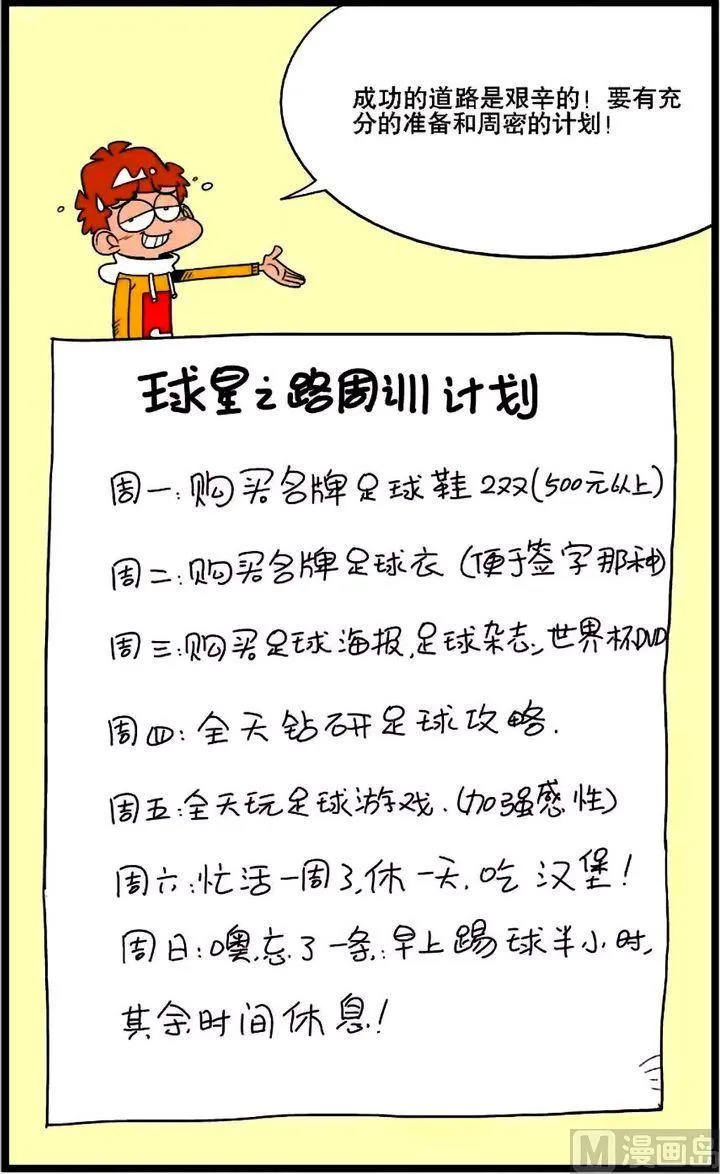 成功的道路是艰辛的！要有充
分的准备和周密的计划！
球星之路周训计划
周一：购买名牌足球鞋2双(500元以上)
周二：购买名牌足球衣(便于签字那种)
周三：购买足球海报，足球杂志、世界杯DVD
周四：全天钻研足球攻略．
周五：全天玩足球游戏．(加强感性)
周六：忙活一周了，休一天，吃汉堡！
周日：噢，忘了一条：早上踢球半小时，
其余时间休息！
M 漫画岛